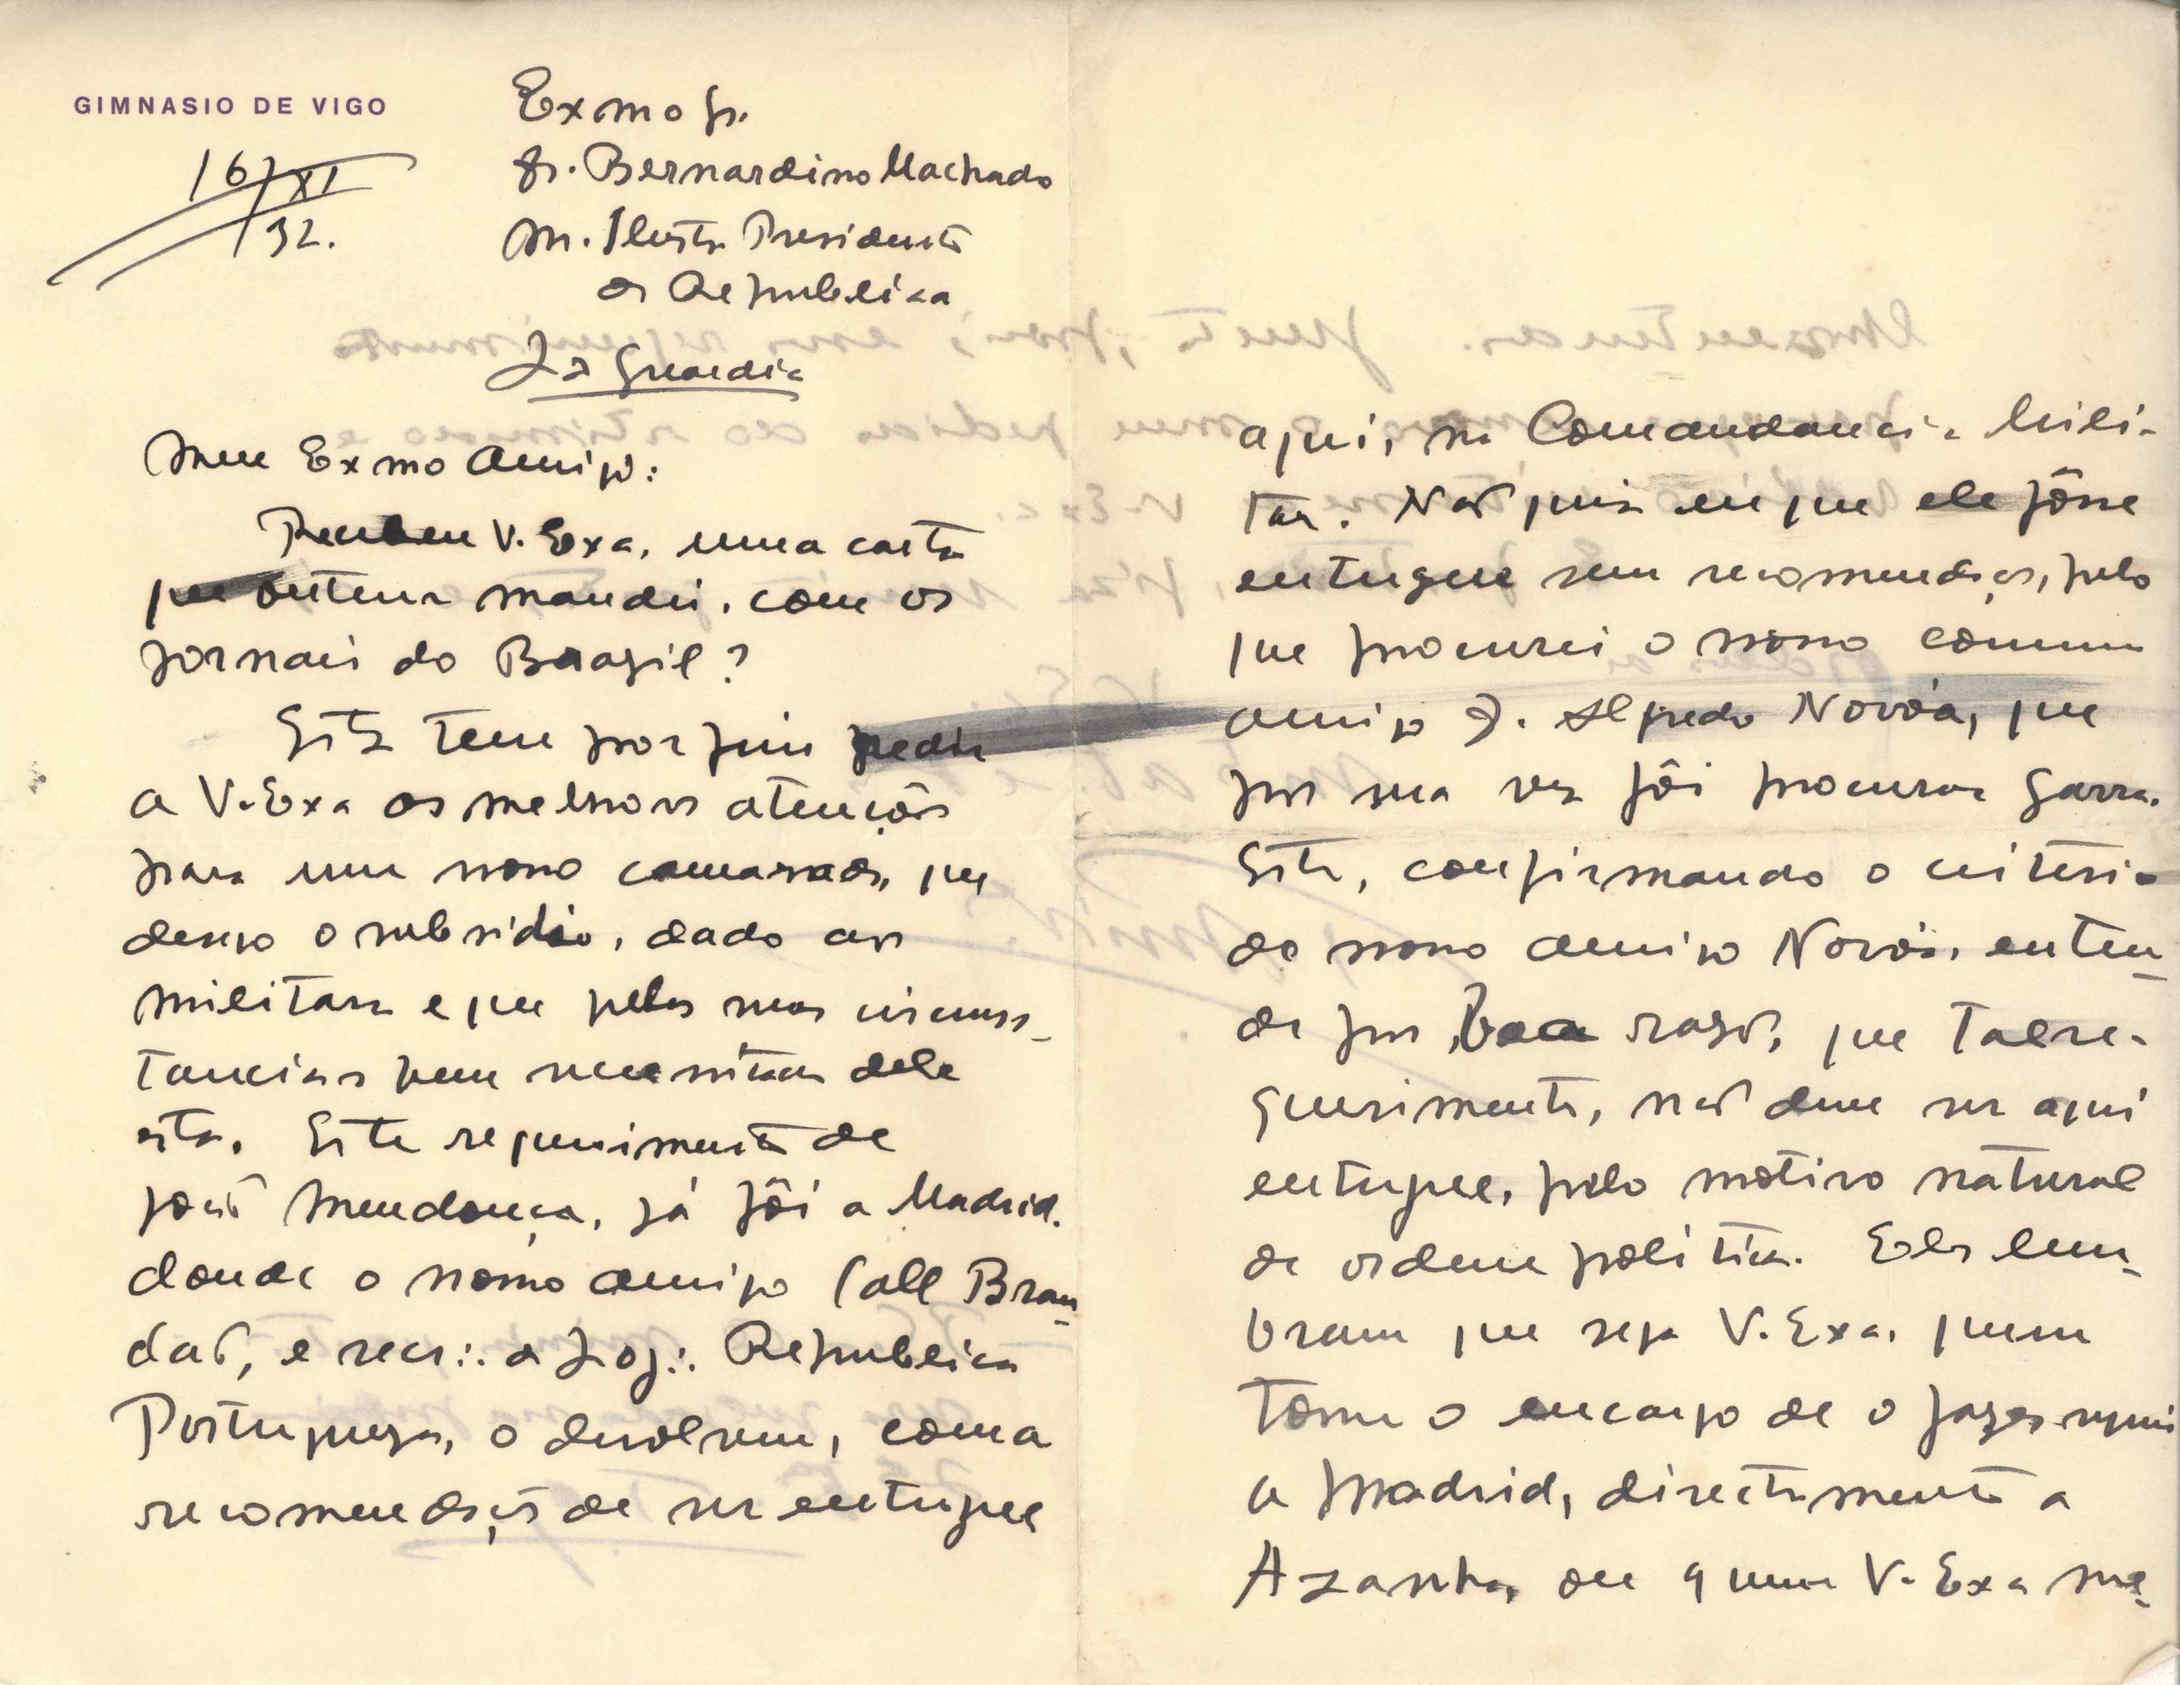 GIMNASIO DE VIGO
16/XI
/32.
Exmo Sr.
Dr. Bernardino Machado
M. Ilustre Presidente
da Republica
La Guardia
Meu Exmo Amigo:
Recebeu V. Exa. uma carta
que ontem mandei, com os
jornais do Brazil?
Esta tem por fim pedir
a V. Exa as melhores atenções
para um nosso camarada, que
deseja o subsidio, dado aos
militares e que pelas suas circuns-
tancias bem necessitado dele
está. Este requerimento de
José Mendonça, já fôi a Madrid.
donde o nosso amigo Call Bran-
dão, e secr∴ da Loj∴ Republica
Portugueza, o devolveu, com a
recomendação de ser entregue
aqui, na Comandancia Mili-
tar. Não quiz eu que ele fôsse
entregue sem recomendação, pelo
que procurei o nosso comum
amigo J. Alfredo Novôa, que
por sua vez fôi procurar Garra.
Este, confirmando o criterio
do nosso amigo Novôa, enten-
de por boa razão, que tal re-
querimento, não deve ser aqui
entregue, pelo motivo natural
de ordem politica. Eles lem-
bram que seja V. Exa. quem
tome o encargo de o fazer seguir
a Madrid, directamente a
Azanha, ou a quem V. Exa me-